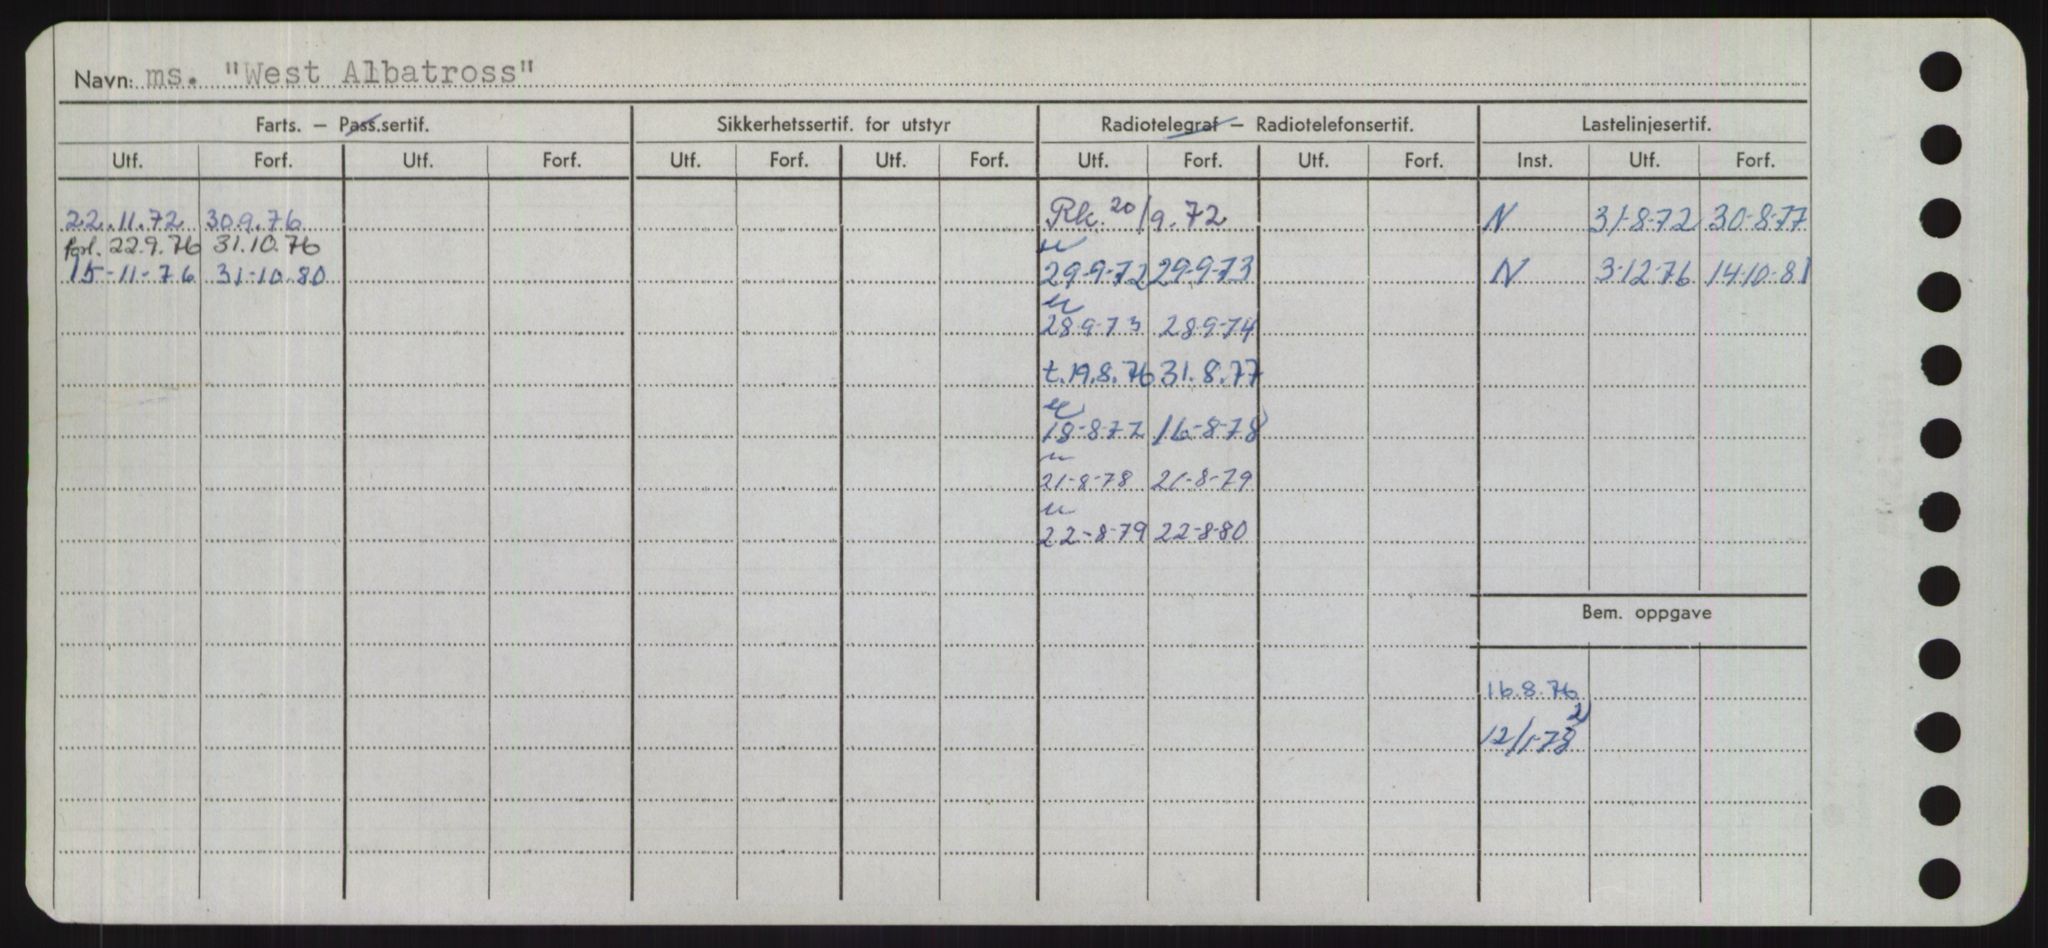 Navn: ms. "West Albatross"
Farts. – Pass.sertif. Sikkerhetssertif. for utstyr Radiotelegraf – Radiotelefonsertif. Lastelinjesertif.
Utf. Forf. Utf. Forf. Utf. Forf. Utf. Forf. Utf. Forf. Utf. Forf. Inst. Utf. Forf.
22.11.72 30.9.76 Rk. 20/9.72 N 31-8-72 30-8-77
forl. 22.9.76 31.10.76
15-11-76 31-10-80 29-9-72 29-9-73 N 3-12-76 14-10-81
28-9-73 28-9-74
t.19.8.76 31.8.77
18-8-77 16-8-78
21-8-78 21-8-79
22-8-79 22-8-80
Bem. oppgave
16.8.76
2)
12/1-78